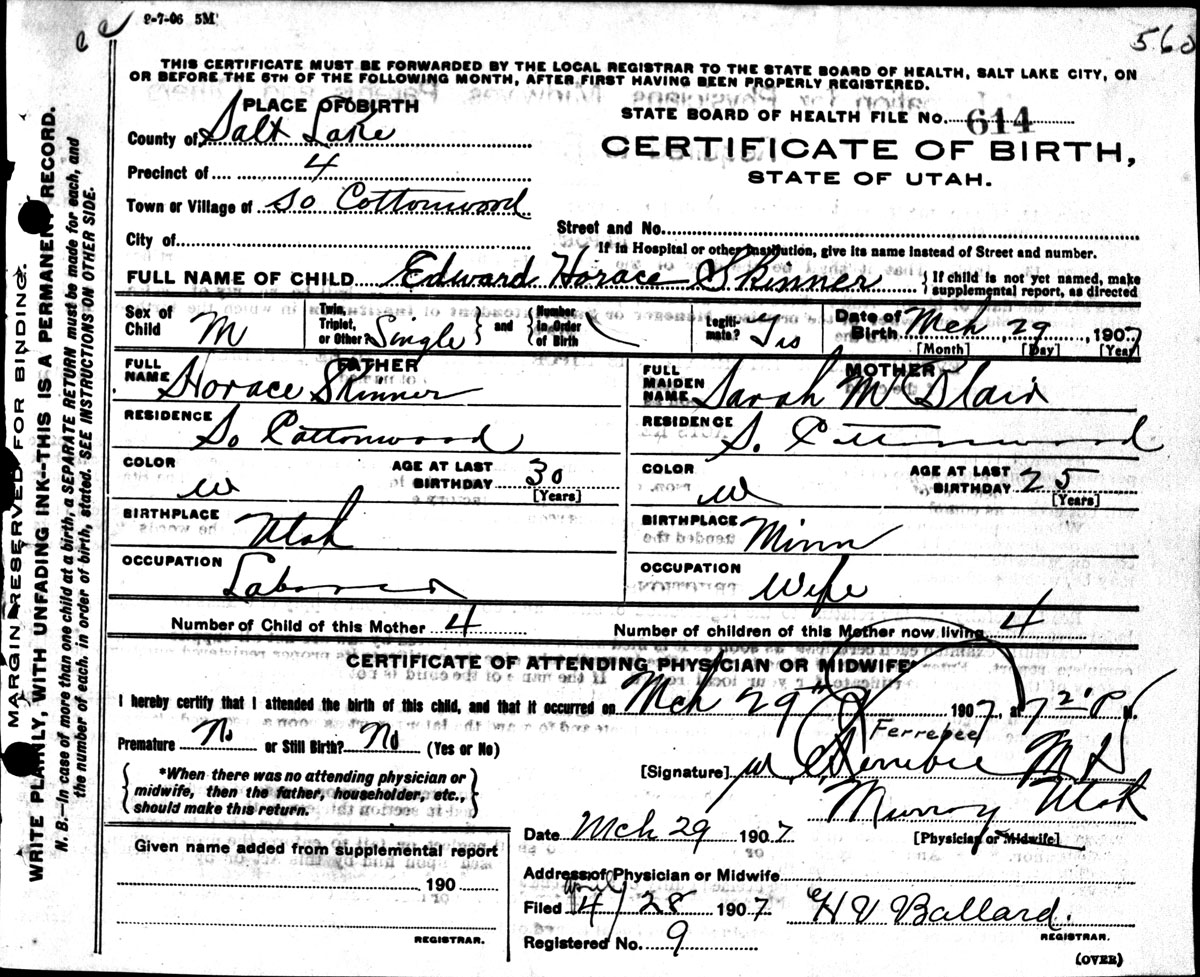 2-7-06 5M
560
THIS CERTIFICATE MUST BE FORWARDED BY THE LOCAL REGISTRAR TO THE STATE BOARD OF HEALTH, SALT LAKE CITY, ON
OR BEFORE THE 5TH OF THE FOLLOWING MONTH, AFTER FIRST HAVING BEEN PROPERLY REGISTERED.
PLACE OF BIRTH
County of Salt Lake
Precinct of 4
Town or Village of So Cottonwood
City of
STATE BOARD OF HEALTH FILE No. 614
CERTIFICATE OF BIRTH,
STATE OF UTAH.
Street and No.
If in Hospital or other institution, give its name instead of Street and number.
FULL NAME OF CHILD Edward Horace Skinner { If child is not yet named, make supplemental report, as directed
Sex of Child M Twin, Triplet, or Other Single } and { Number in Order of Birth Legiti-mate? Yes Date of Birth Mch 29, 1907
[Month] [Day] [Year]
FATHER
FULL NAME Horace Skinner
RESIDENCE So Cottonwood
COLOR W AGE AT LAST BIRTHDAY 30
[Years]
BIRTHPLACE Utah
OCCUPATION Laborer
MOTHER
FULL MAIDEN NAME Sarah M Blair
RESIDENCE S. Cottonwood
COLOR W AGE AT LAST BIRTHDAY 25
[Years]
BIRTHPLACE Minn
OCCUPATION Wife
Number of Child of this Mother 4 Number of children of this Mother now living 4
CERTIFICATE OF ATTENDING PHYSICIAN OR MIDWIFE*
I hereby certify that I attended the birth of this child, and that it occurred on Mch 29th 1907, at 7 20 P M.
Premature No or Still Birth? No (Yes or No)
Ferrebee
[Signature] M D
Murray Utah
[Physician or Midwife]
{ *When there was no attending physician or
midwife, then the father, householder, etc.,
should make this return. }
Date Mch 29 1907
Given name added from supplemental report
190
REGISTRAR.
Address of Physician or Midwife
April
Filed 4/28 1907 H V Ballard.
REGISTRAR.
Registered No. 9
(OVER)
MARGIN RESERVED FOR BINDING.
WRITE PLAINLY, WITH UNFADING INK--THIS IS A PERMANENT RECORD.
N. B.--In case of more than one child at a birth, a SEPARATE RETURN must be made for each, and
the number of each, in order of birth, stated. SEE INSTRUCTIONS ON OTHER SIDE.